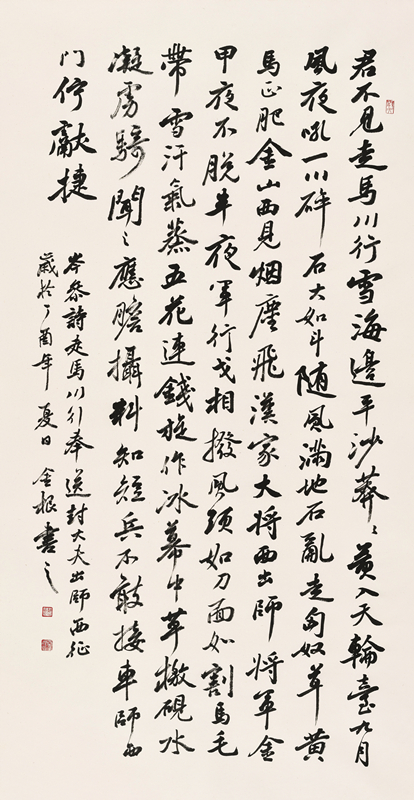 君不見走馬川行雪海邊平沙莽々黃入天輪臺九月
風夜吼一川碎石大如斗随風滿地石亂走匈奴草黃
馬正肥金山西見烟塵飛漢家大將西出師將軍金
甲夜不脱半夜軍行戈相撥風頭如刀面如割馬毛
帶雪汗氣蒸五花連錢旋作冰幕中草檄硯水
凝虜騎聞之應膽攝料知短兵不敢接車師西
門佇獻捷
岑參詩走馬川引奉送封大夫出師西征
歲於丁酉年夏日金根書之